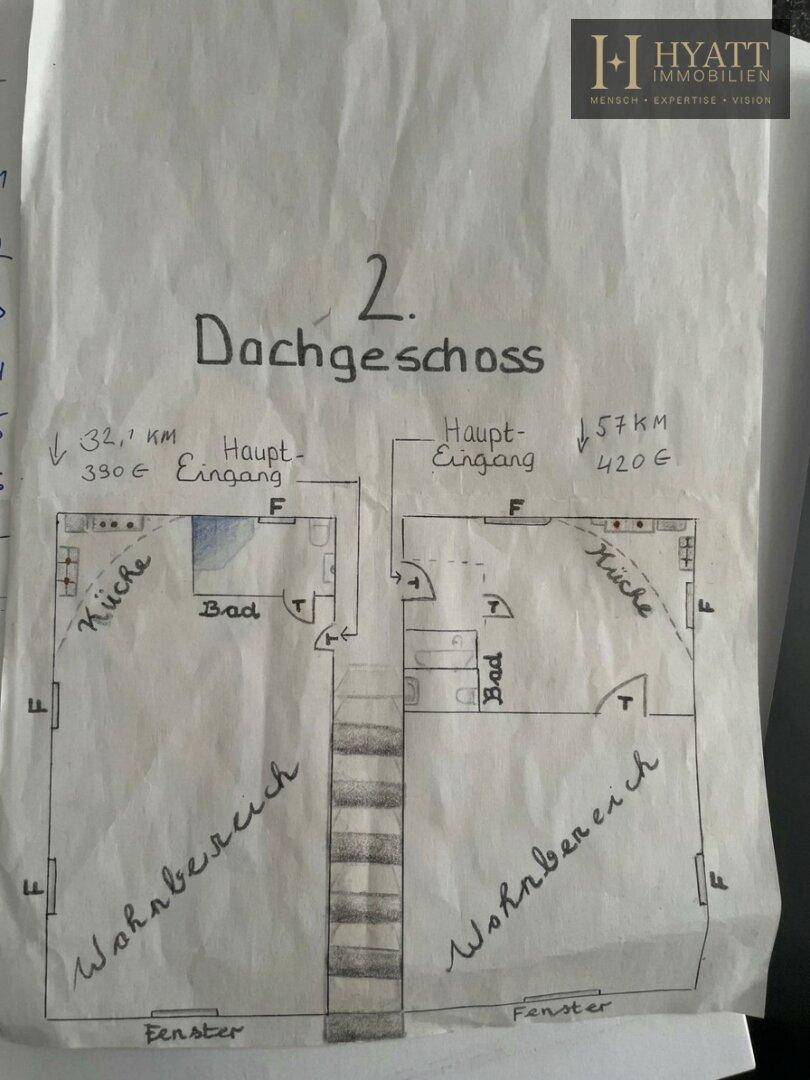 HYATT
IMMOBILIEN
MENSCH • EXPERTISE • VISION
2.
Dachgeschoss
↓ 32,1 KM
390 €
Haupt-
Eingang
Haupt-
Eingang
↓ 57 KM
420 €
F
F
Küche
Bad
T
T
T
T
Küche
F
Bad
T
F
F
Wohnbereich
Wohnbereich
F
Fenster
Fenster